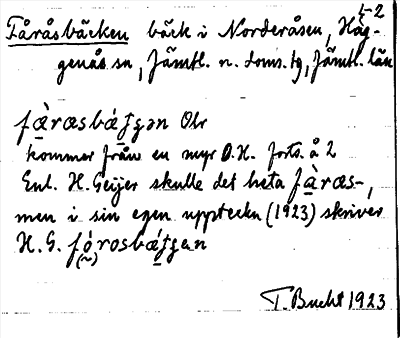 1-2
Fåråsbäcken bäck i Norderåsen, Häg-
genås sn, Jämtl. n. doms. tg, Jämtl. län
fàrasbáʃʒən Obr
kommer från en myr O.H. forts. å 2
Enl. H. Geijer skulle det heta fàræs-,
men i sin egen uppteckn (1923) skriver
H. G. fórosbǽʃʒen
(~)
T. Bucht 1923